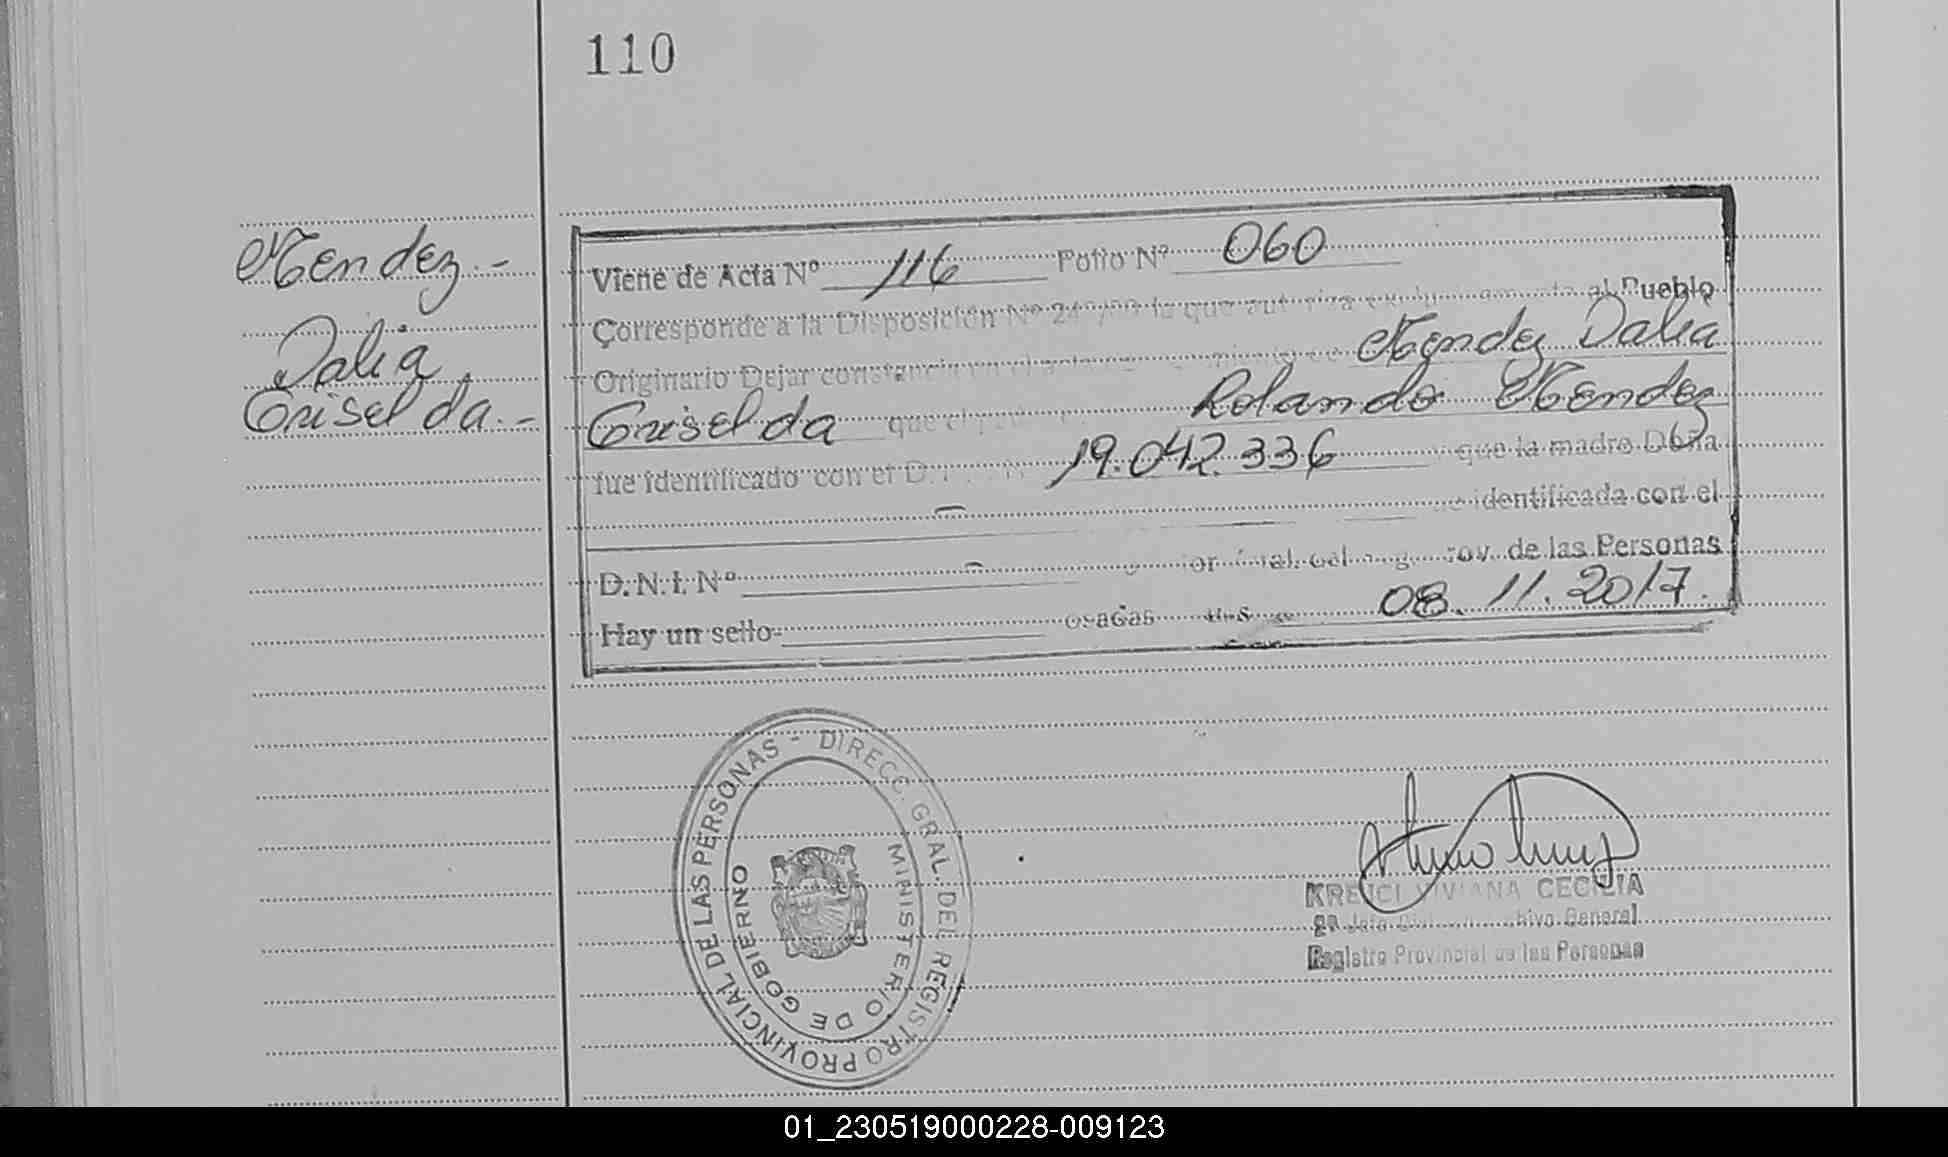 110
Mendez.-
Dalia
Griselda.-
Viene de Acta Nº 116 Folio Nº 060
Corresponde a la Disposición Nº la que al Pueblo
Originario Dejar constancia en el Mendez Dalia
Griselda que el Rolando Mendez
fue identificado con el D. 19.042.336 que la madre Doña
— identificada con el
D.N.I. Nº — de las Personas
Hay un sello- 08.11.2017.
DIRECC. GRAL. DEL REGISTRO PROVINCIAL DE LAS PERSONAS -
MINISTERIO DE GOBIERNO
KREJCI VIVIANA CECILIA
General
Registro Provincial de las Personas
01_230519000228-009123